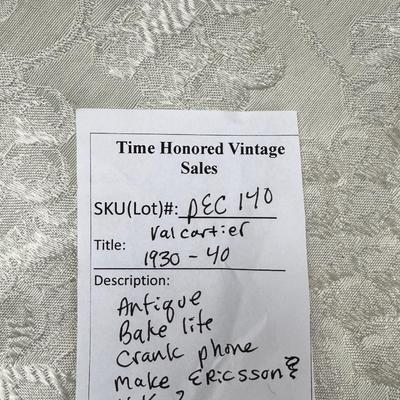 Time Honored Vintage
Sales
SKU(Lot)#: DEC 140
Title: Valcartier
1930 - 40
Description:
Antique
Bake lite
Crank phone
Make ERICSSON &